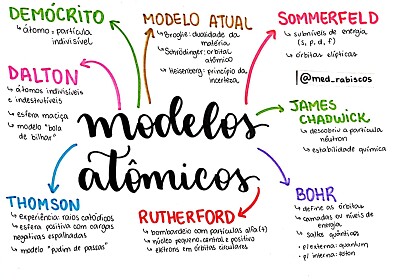 DEMÓCRITO
↳ átomo = partícula
indivisível
MODELO ATUAL
↳ Broglie: dualidade da
matéria
↳ Schrödinger: orbital
atômico
↳ Heisenberg: princípio da
incerteza
SOMMERFELD
↳ subníveis de energia
(s, p, d, f)
↳ órbitas elípticas
@med_rabiscos
DALTON
↳ átomos indivisíveis
e indestrutíveis
↳ esfera maciça
↳ modelo "bola
de bilhar"
modelos
atômicos
JAMES
CHADWICK
↳ descobriu a partícula
nêutron
↳ estabilidade química
THOMSON
↳ experiência: raios catódicos
↳ esfera positiva com cargas
negativas espalhadas
↳ modelo "pudim de passas"
RUTHERFORD
↳ bombardeio com partículas alfa (+)
↳ núcleo pequeno, central e positivo
↳ elétrons em órbitas circulares
BOHR
↳ define as órbitas
↳ camadas ou níveis de
energia
↳ saltos quânticos
p/ externa: quantum
p/ interna: fóton